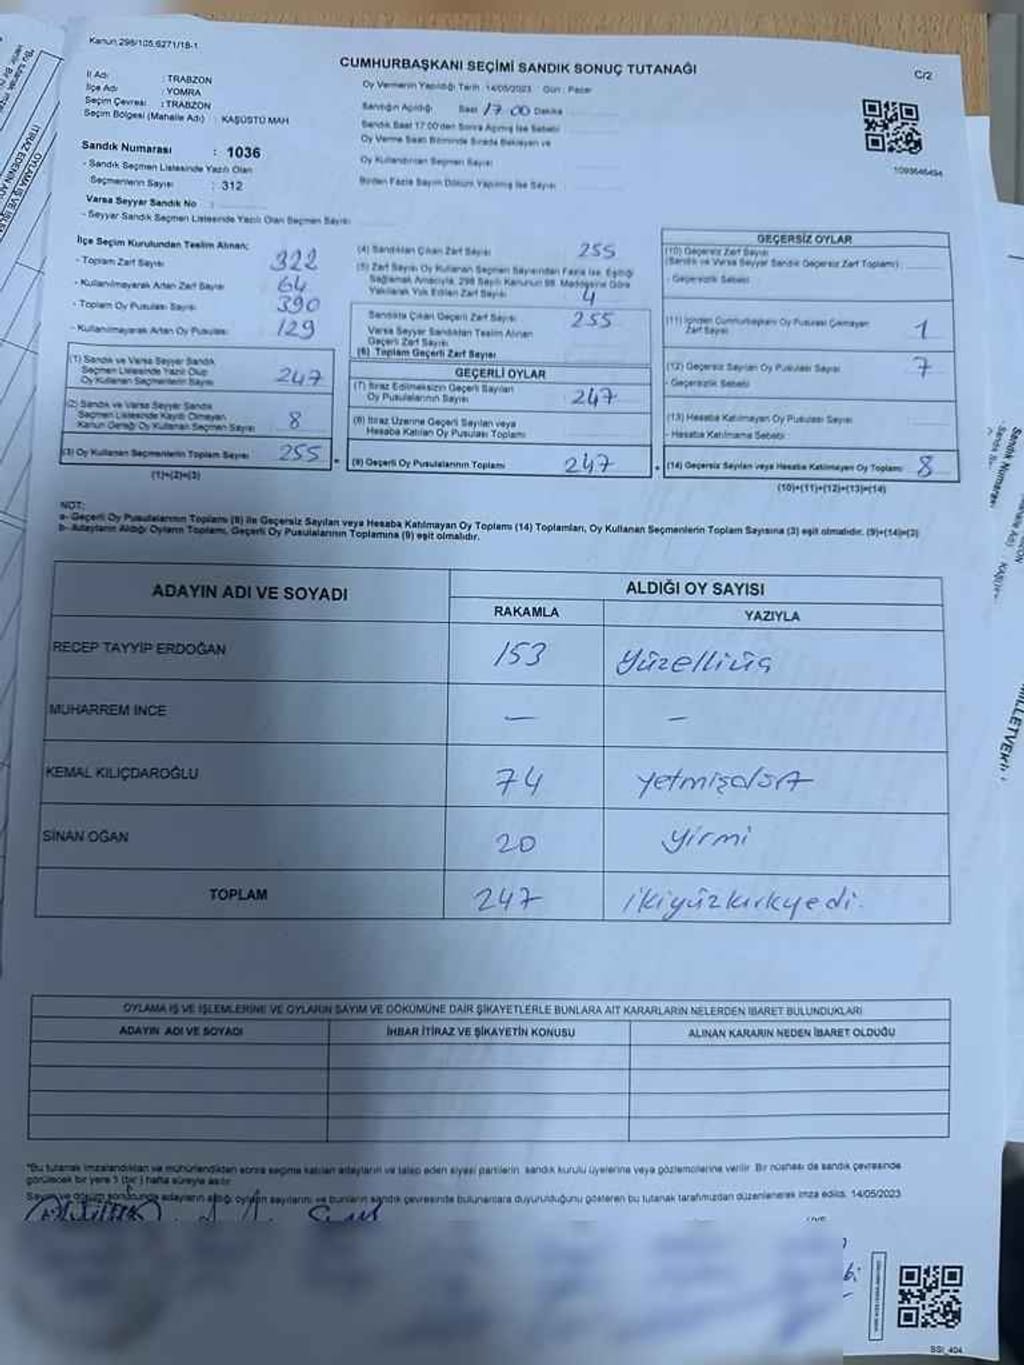 Kanun 298/105,6271/18-1
CUMHURBAŞKANI SEÇİMİ SANDIK SONUÇ TUTANAĞI
C/2
İl Adı : TRABZON
İlçe Adı : YOMRA
Seçim Çevresi : TRABZON
Seçim Bölgesi (Mahalle Adı) : KAŞÜSTÜ MAH
Oy Vermenin Yapıldığı Tarih 14/05/2023 Gün : Pazar
Sandığın Açıldığı Saat 17 00 Dakika
Sandık Saat 17.00'den Sonra Açılmış İse Sebebi
Oy Verme Saati Bitiminde Sırada Bekleyen ve
Oy Kullandırılan Seçmen Sayısı
Birden Fazla Sayım Döküm Yapılmış İse Sayısı
1093646494
Sandık Numarası : 1036
- Sandık Seçmen Listesinde Yazılı Olan
Seçmenlerin Sayısı : 312
Varsa Seyyar Sandık No :
- Seyyar Sandık Seçmen Listesinde Yazılı Olan Seçmen Sayısı
İlçe Seçim Kurulundan Teslim Alınan;
- Toplam Zarf Sayısı 322
- Kullanılmayarak Artan Zarf Sayısı 64
- Toplam Oy Pusulası Sayısı 390
- Kullanılmayarak Artan Oy Pusulası 129
(1) Sandık ve Varsa Seyyar Sandık
Seçmen Listesinde Yazılı Olup
Oy Kullanan Seçmenlerin Sayısı 247
(2) Sandık ve Varsa Seyyar Sandık
Seçmen Listesinde Kayıtlı Olmayan
Kanun Gereği Oy Kullanan Seçmen Sayısı 8
(3) Oy Kullanan Seçmenlerin Toplam Sayısı 255
(1)+(2)=(3)
(4) Sandıktan Çıkan Zarf Sayısı 255
(5) Zarf Sayısı Oy Kullanan Seçmen Sayısından Fazla İse, Eşitliği
Sağlamak Amacıyla, 298 Sayılı Kanunun 98. Maddesine Göre
Yakılarak Yok Edilen Zarf Sayısı 4
Sandıkta Çıkan Geçerli Zarf Sayısı 255
Varsa Seyyar Sandıktan Teslim Alınan
Geçerli Zarf Sayısı
(6) Toplam Geçerli Zarf Sayısı
GEÇERLİ OYLAR
(7) İtiraz Edilmeksizin Geçerli Sayılan
Oy Pusulalarının Sayısı 247
(8) İtiraz Üzerine Geçerli Sayılan veya
Hesaba Katılan Oy Pusulası Toplamı
(9) Geçerli Oy Pusulalarının Toplamı 247
GEÇERSİZ OYLAR
(10) Geçersiz Zarf Sayısı
(Sandık ve Varsa Seyyar Sandık Geçersiz Zarf Toplamı)
- Geçersizlik Sebebi
(11) İçinden Cumhurbaşkanı Oy Pusulası Çıkmayan
Zarf Sayısı 1
(12) Geçersiz Sayılan Oy Pusulası Sayısı 7
- Geçersizlik Sebebi
(13) Hesaba Katılmayan Oy Pusulası Sayısı
- Hesaba Katılmama Sebebi
(14) Geçersiz Sayılan veya Hesaba Katılmayan Oy Toplamı 8
(10)+(11)+(12)+(13)=(14)
NOT:
a- Geçerli Oy Pusulalarının Toplamı (9) ile Geçersiz Sayılan veya Hesaba Katılmayan Oy Toplamı (14) Toplamları, Oy Kullanan Seçmenlerin Toplam Sayısına (3) eşit olmalıdır. (9)+(14)=(3)
b- Adayların Aldığı Oyların Toplamı, Geçerli Oy Pusulalarının Toplamına (9) eşit olmalıdır.
ADAYIN ADI VE SOYADI
ALDIĞI OY SAYISI
RAKAMLA YAZIYLA
RECEP TAYYİP ERDOĞAN 153 Yüzelliüç
MUHARREM İNCE — —
KEMAL KILIÇDAROĞLU 74 yetmişdört
SİNAN OĞAN 20 yirmi
TOPLAM 247 ikiyüzkırkyedi.
OYLAMA İŞ VE İŞLEMLERİNE VE OYLARIN SAYIM VE DÖKÜMÜNE DAİR ŞİKAYETLERLE BUNLARA AİT KARARLARIN NELERDEN İBARET BULUNDUKLARI
ADAYIN ADI VE SOYADI
İHBAR İTİRAZ VE ŞİKAYETİN KONUSU
ALINAN KARARIN NEDEN İBARET OLDUĞU
*Bu tutanak imzalandıktan ve mühürlendikten sonra seçime katılan adayların ve talep eden siyasi partilerin sandık kurulu üyelerine veya gözlemcilerine verilir. Bir nüshası da sandık çevresinde
görülecek bir yere 1 (bir) hafta süreyle asılır.
Sayım ve döküm sonucunda adayların aldığı oyların sayılarını ve bunların sandık çevresinde bulunanlara duyurulduğunu gösteren bu tutanak tarafımızdan düzenlenerek imza edildi. 14/05/2023
SSI_404
Sandık Numarası